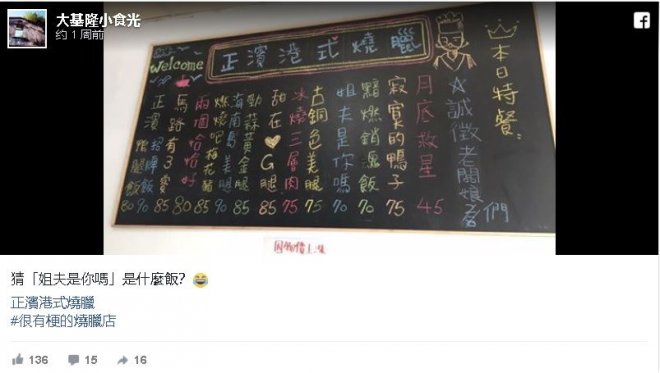 大基隆小食光
約 1 周前
Welcome
正濱港式燒臘
本日特餐
☆誠徵老闆娘
們
月底救星 45
寂寞的鴨子 75
黯燃銷魂飯 70
姐夫是你嗎 70
古銅色美腿 75
冰燒三層肉 75
甜在♡G腿 85
勁蒜黃金腿 85
海南島美腿 90
燃燒吧梅花豬 85
兩個恰恰好 80
馬路有3寶 85
正濱
招牌飯 90
鴨腿飯 80
猜「姐夫是你嗎」是什麼飯? 😂
正濱港式燒臘
#很有梗的燒臘店
136 15 16